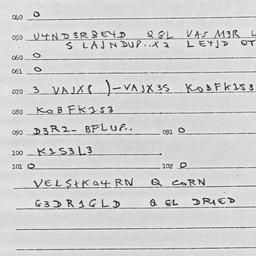 040 O
050 U4ND3RBE4D Q GL VAS M3R L
S LAJNDUP..X2 LEYJD OT
060 O
061 O
070 3 VAJX8 )-VAJX3S KOBFK1S3
080 KOBFK1S3
090 D3R2- BFLUP.. 091 O
100 K1S3L3
101 O 102 O
VELS+KO4RN Q CORN
G3DR1GLD Q GL DRIED